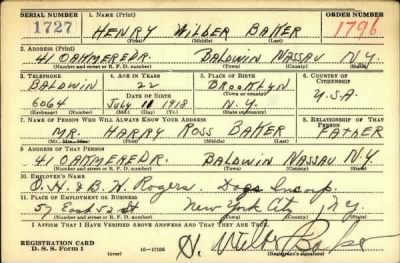 SERIAL NUMBER 1. NAME (Print) ORDER NUMBER
1727 HENRY WILDER BAKER 1796
(First) (Middle) (Last)
2. ADDRESS (Print)
41 OAKMERE DR. BALDWIN NASSAU N.Y.
(Number and street or R. F. D. number) (Town) (County) (State)
3. TELEPHONE 4. AGE IN YEARS 5. PLACE OF BIRTH 6. COUNTRY OF CITIZENSHIP
BALDWIN 22 BROOKLYN
6064 July 10 1918 N.Y. U.S.A
(Exchange) (Number) (Mo.) (Day) (Yr.) (State or country)
7. NAME OF PERSON WHO WILL ALWAYS KNOW YOUR ADDRESS 8. RELATIONSHIP OF THAT PERSON
MR. HARRY ROSS BAKER FATHER
(First) (Middle) (Last)
9. ADDRESS OF THAT PERSON
41 OAKMERE DR. BALDWIN NASSAU N.Y.
(Number and street or R. F. D. number) (Town) (County) (State)
10. EMPLOYER'S NAME
O. H. & B. H. Rogers. Incorp.
11. PLACE OF EMPLOYMENT OR BUSINESS
57 East 52 St New York City N.Y.
(Number and street or R. F. D. number) (Town) (County) (State)
I AFFIRM THAT I HAVE VERIFIED ABOVE ANSWERS AND THAT THEY ARE TRUE.
REGISTRATION CARD
D. S. S. Form 1 (over) H. Wilder Baker
(Registrant's signature)